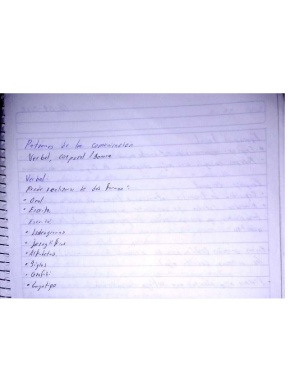 de la comunicación
Verbal, corporal
Verbal:
de dos formas:
• Oral
• Escrita
Escrita
• Ideogramas
• Jeroglíficos
• Alfabetos
• Siglas
• Grafiti
• Logotipo